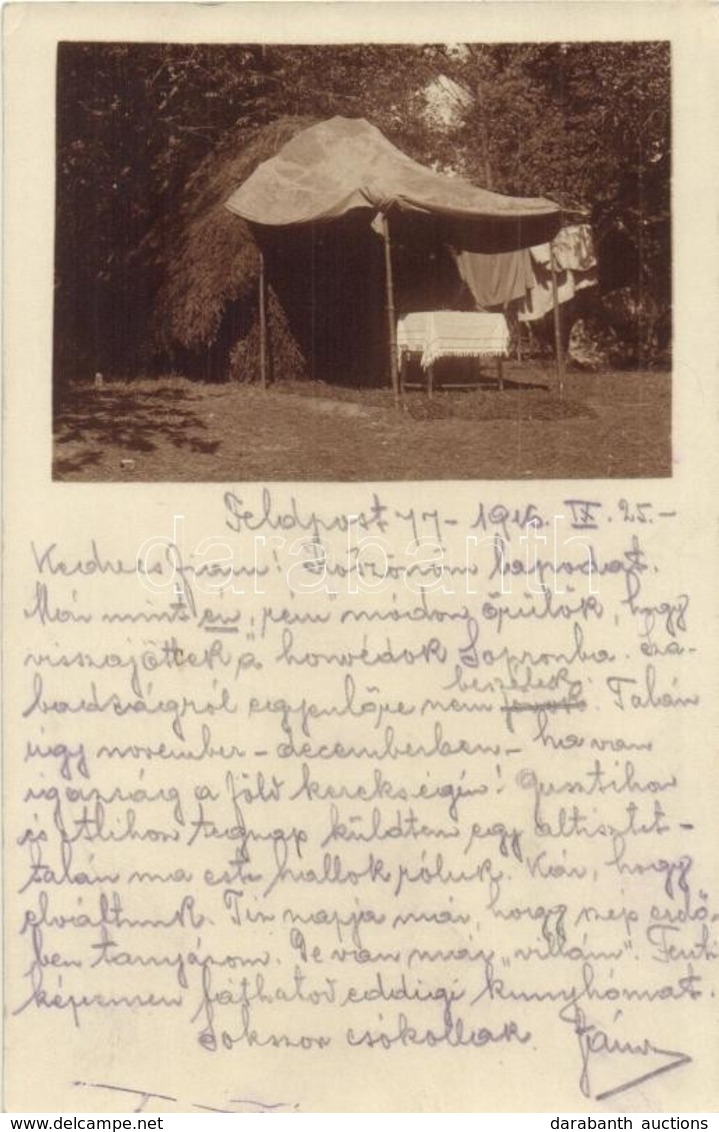 Feldpost 77 - 1916. IX. 25. -
Kedves fiam! Köszönöm lapodat.
Már mint én, rém módon örülök, hogy
visszajöttek a honvédok Sopronba. Sza-
badságról egyenlőre nem beszélek. Talán
úgy november - decemberben - ha van
igazság a föld kerekségén! Gusztihoz
és Atlihoz tegnap küldtem egy altisztet -
talán ma este hallok róluk. Kár, hogy
elváltunk. Tiz napja már, hogy szép erdő-
ben tanyázom. De van már "villám". Fenti
képemen láthatod eddigi kunyhómat.
Sokszor csókollak János
darabanth
darabanth auctions